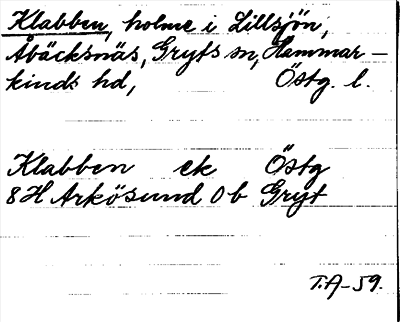 Klabben, holme i Lillsjön,
Åbäcksnäs, Gryts sn, Hammar-
kinds hd, Östg. l.
Klabben ek Östg
8H Arkösund 0b Gryt
T.A-59.